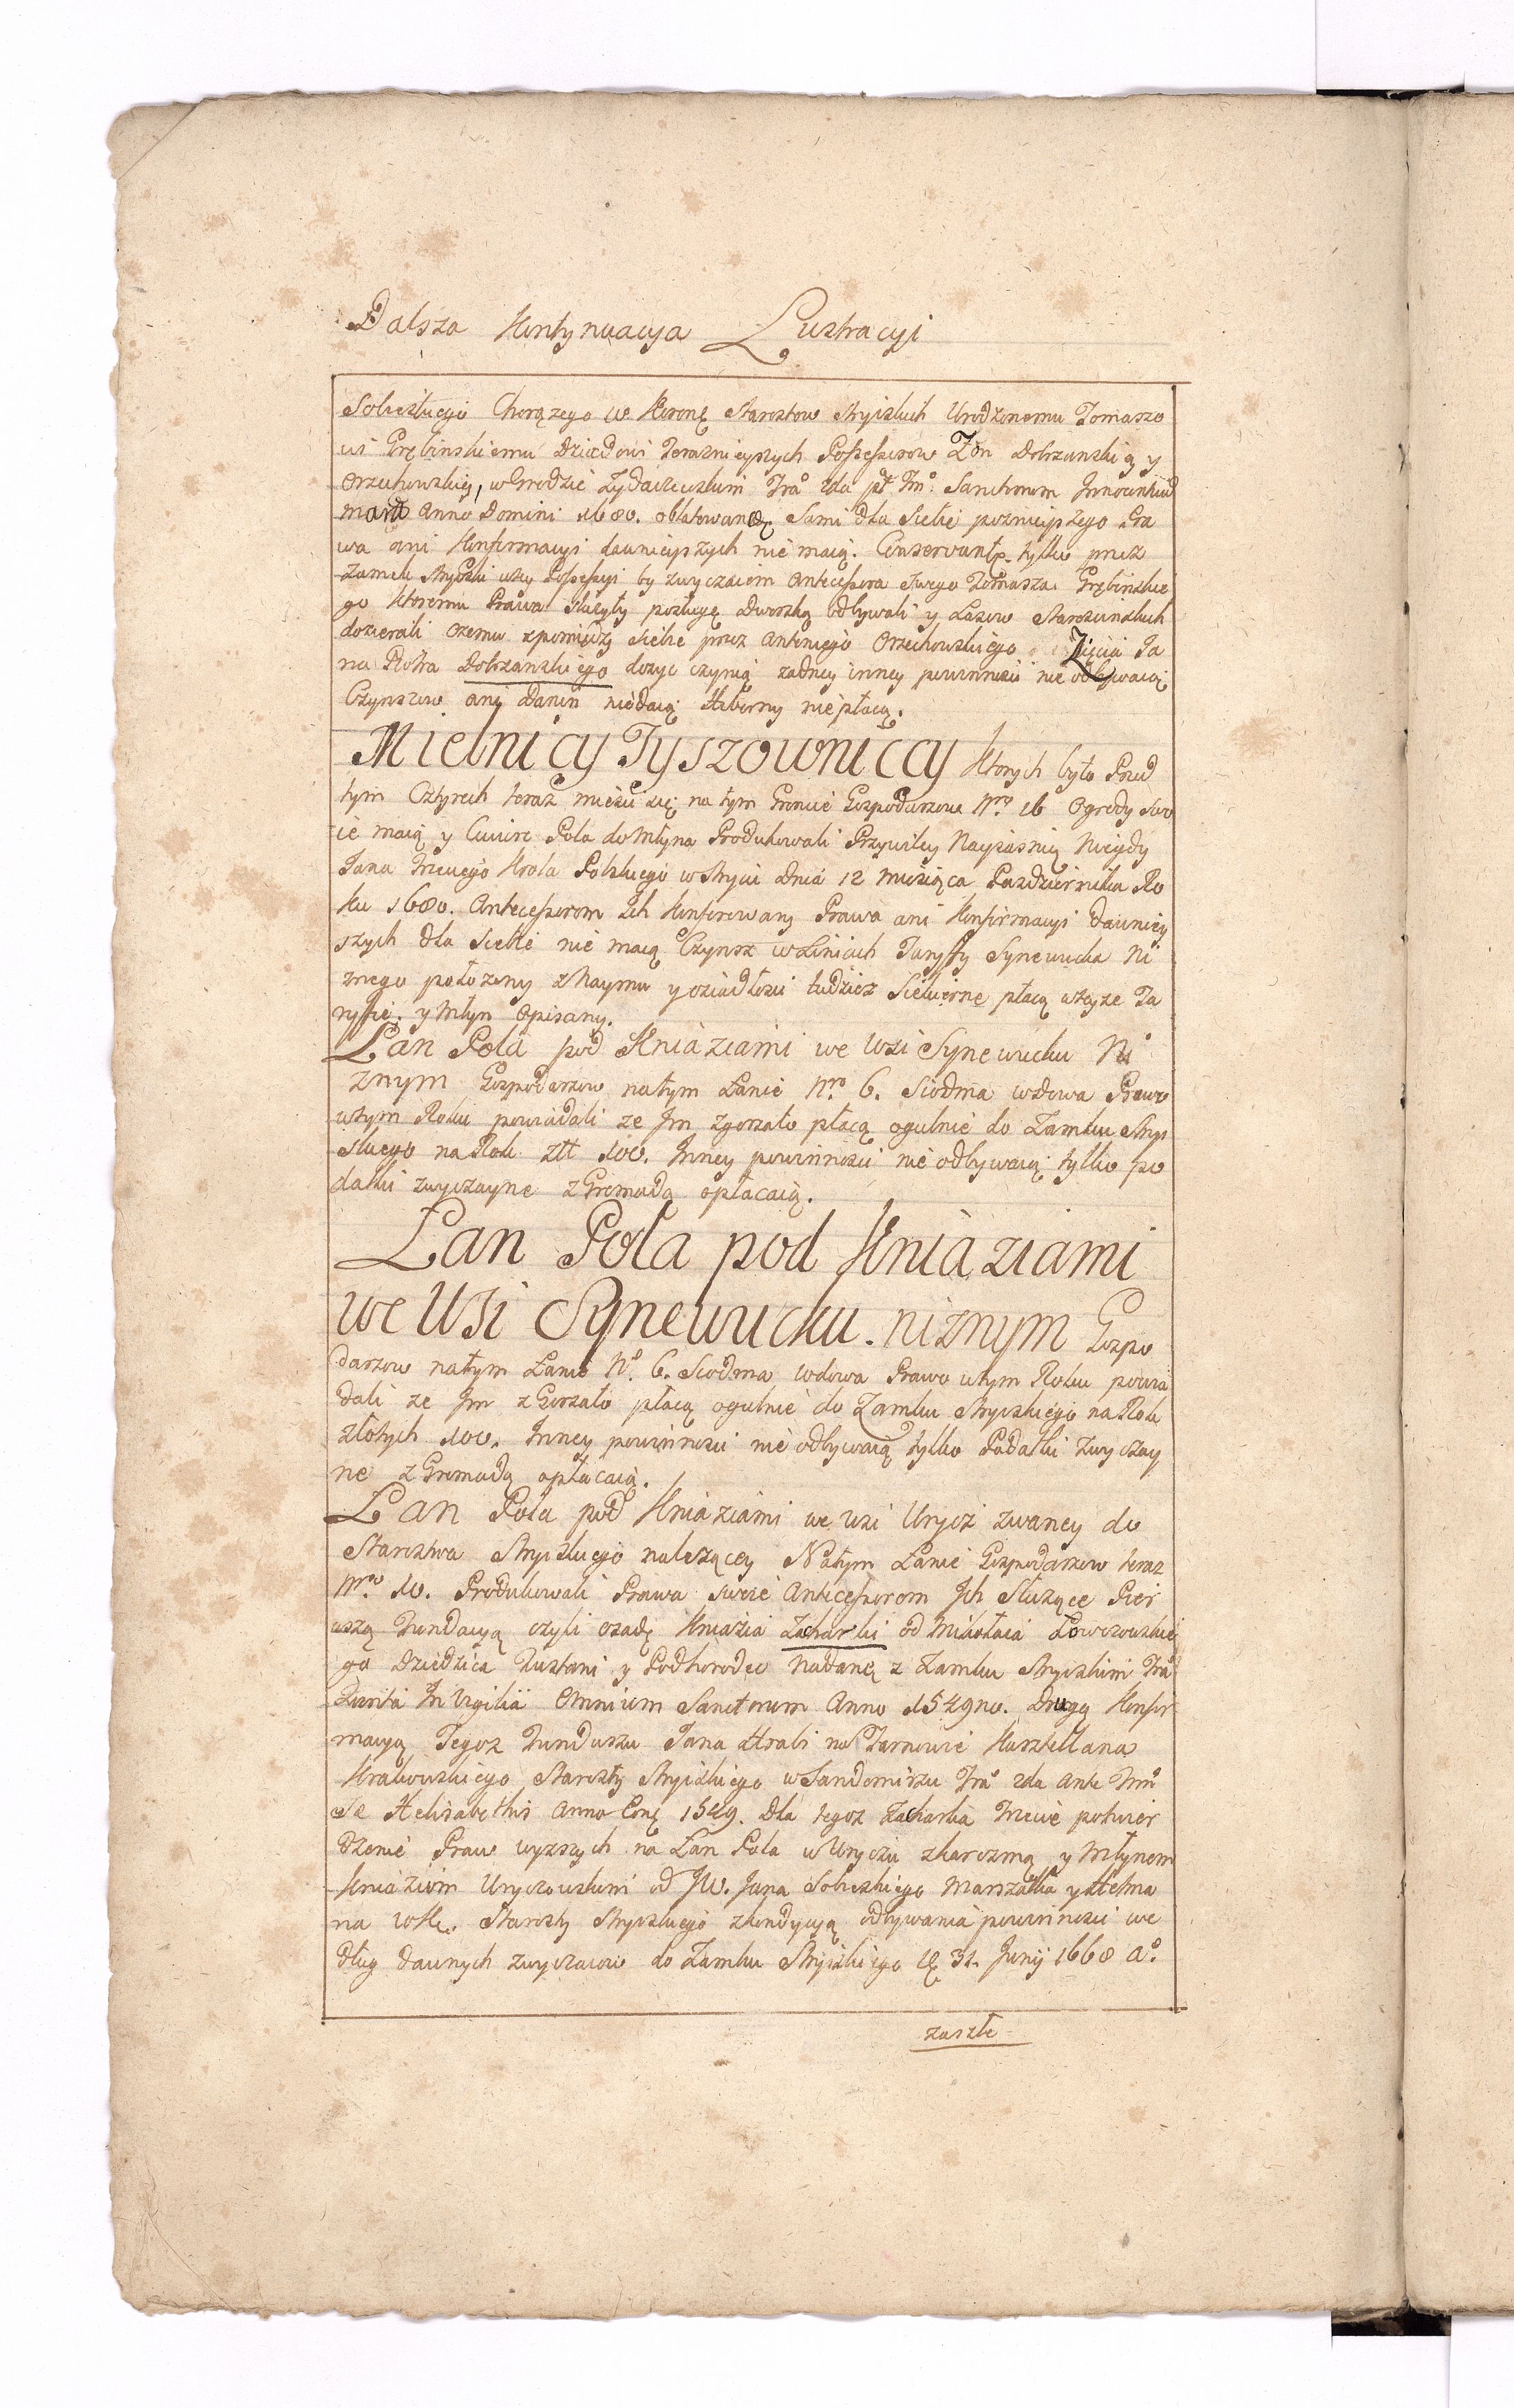 Dalsza Kontynuacya Lustracyi
Sobieskiego Chorązego W Koronę Starostow Stryiskich Urodzonemu Tomaszo
wi Grębinskiemu Dziadowi Teraznieyszych Possessorow Zon Dobrzanskiey y
Orzechowskiey, w Grodzie Zydaczewskim Fra 2da pt Fm Sanctorum Innocentium
mart Anno Domini 1680. oblatowaną Sami dla Siebie poznieyszego Pra
wa ani Konfirmacyi dawnieyszych nie maią. Conservant. tylko przez
Zamek Stryiski w tey Possessyi by zwyczaiem Antecessora Swego Tomasza Grębinskie
go ktoremu Prawa służyły posługę Dworską odbywali y Lasow Starościnskich
dozierali czemu zpomiędzy siebie przez Antoniego Orzechowskiego Zięcia Ja
na Piotra Dobrzanskiego dosyc czynią zadney inney powinnosci nie odbywaią
Czynszow ani Danin niedaią Hyberny niepłacą.
Mielnicy Tyszowniccy ktorych było Przed
tym Cztyrech teraz miesci się na tym Groncie Gospodarzow Nro. 16 Ogrody swo
ie maią y Cwierc Pola do Młyna Produkowali Przywiley Nayiasnię Niegdy
Jana Trzeciego Krola Polskiego w Stryiu Dnia 12 Miesiąca Pazdziernika Ro
ku 1680. Antecessorom Ich Konferowany Prawa ani Konfirmacyi Dawniey
szych dla siebie nie maią Czynsz w Liniach Taryffy Synewucka Ni
znego połozony z Naymu y osiadłosci tudziesz Siekierne płacą w teyze Ta
ryffie. y Młyn Opisany.
Łan Pola pod Kniaziami we Wsi Synewucku Ni
znym Gospodarzow na tym Łanie Nro. 6. Siodma wdowa Prawo
w tym Roku powiadali ze Im zgorzało płacą ogulnie do Zamku Stryi
skiego na Rok złł 100. Inney powinnosci nie odbywaią tylko po
datki zwyczayne z Gromadą opłacaią.
Łan Pola pod Kniaziami
we Wsi Synewucku. niznym Gospo
darzow na tym Łanie No. 6. Siodma wdowa Prawo w tym Roku powia
dali ze Im z Gorzało płacą ogulnie do Zamku Stryiskiego na Rok
złotych 100. Inney powinnosci nie odbywaią tylko Podatki zwyczay
ne z Gromadą opłacaią.
Łan Pola pod Kniaziami we wsi Urycz zwaney do
Starostwa Stryiskiego nalezącey Na tym Łanie Gospodarzow teraz
Nro. 10. Produkowali Prawa swoie Antecessorom Ich Służące Pier
wszą Fundacyą czyli osadę Kniazia Zacharki od Mikołaia
go Dziedzica Tustani y Podhorodec Nadaną z Zamku Stryiskim Fra
Quinta In Vigilia Omnium Sanctorum Anno 1549no. Drugą Konfir
macyą Tegoz Funduszu Jana Hrabi na Tarnowie Kasztellana
Krakowskiego Starosty Stryiskiego w Sandomirzu Fra 2da Ante Fm
Se Helisabethis Anno Eone 1549. Dla tegoz Zacharka Trzecie potwier
dzenie Praw wyzszych na Łan Pola w Uryczu z karczmą y Młynem
Kniaziom Uryczowskim od JW. Jana Sobieskiego Marszałka y Hetma
na WKo. Starosty Stryiskiego z kondycyą odbywania powinnosci we
dług dawnych zwyczaiow do Zamku Stryiskiego 31. Junij 1668 Ao.
zaszłe